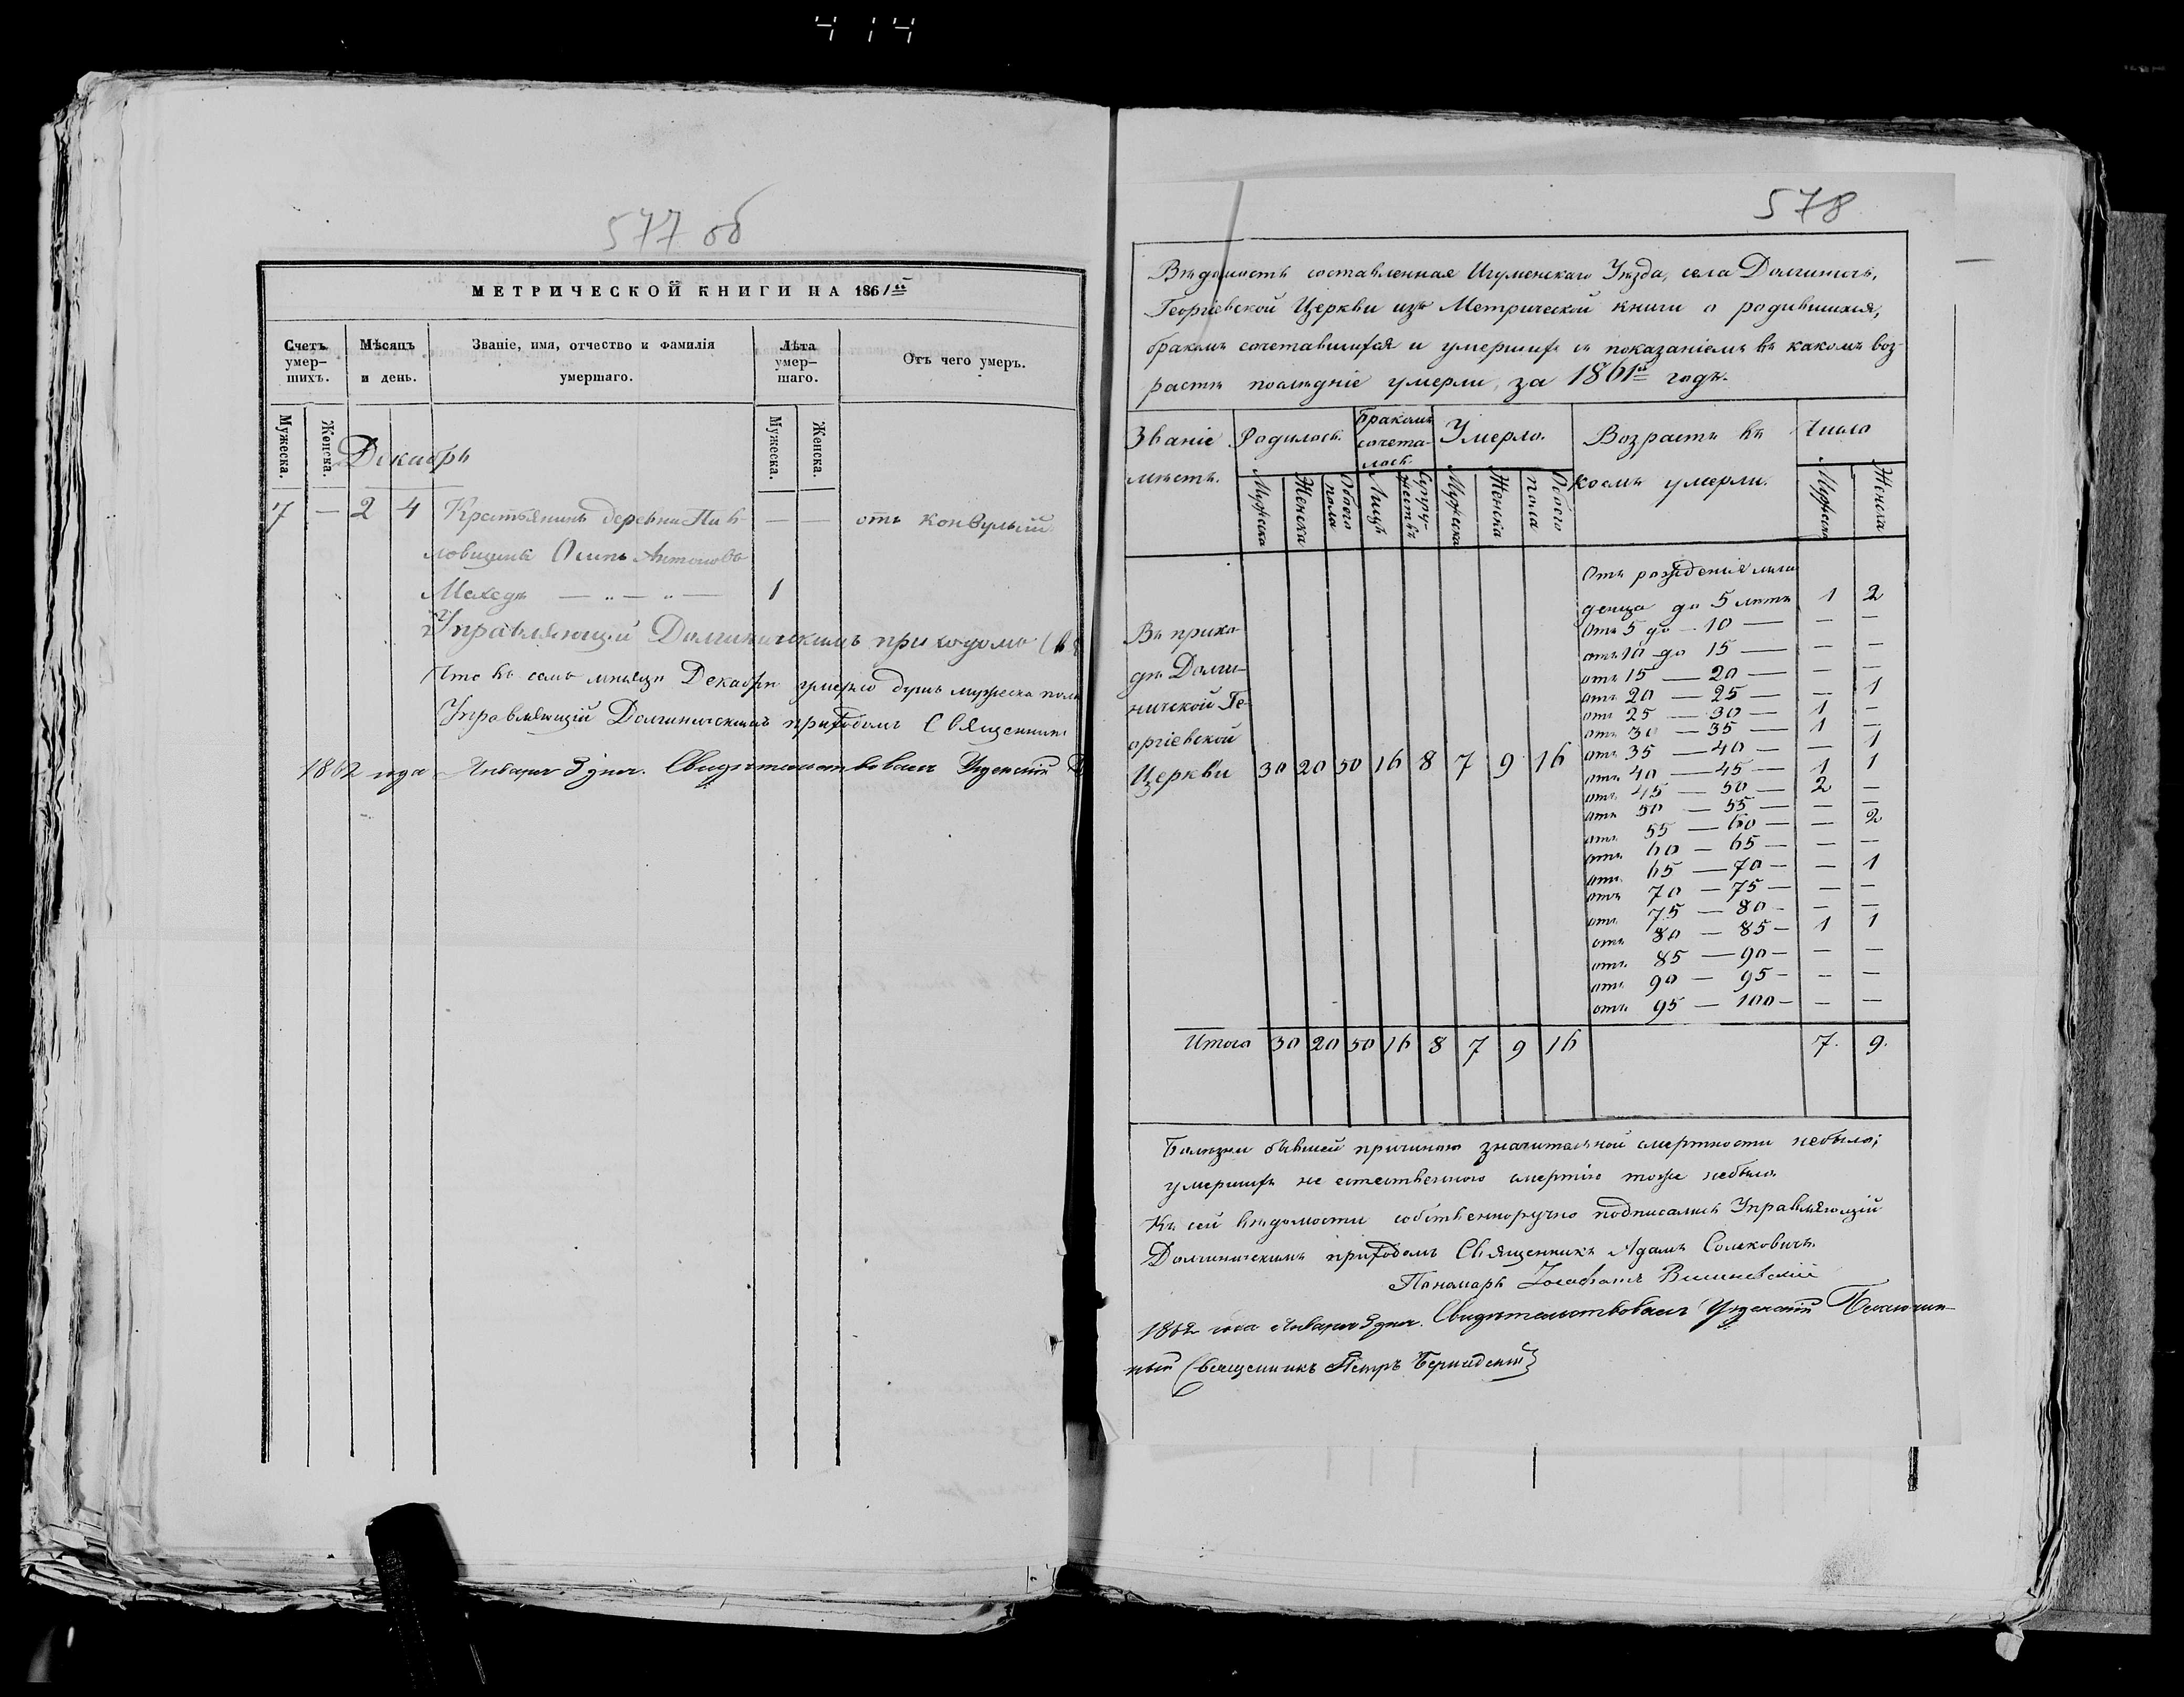 414
577 об
МЕТРИЧЕСКОЙ КНИГИ НА 1861й
Счетъ умер-шихъ.
Мѣсяцъ и день.
Званіе, имя, отчество и фамилія умершаго.
Лѣта умер-шаго.
Отъ чего умеръ.
Мужеска.
Женска.
Мужеска.
Женска.
Декабрь
7 — 2 4 Крестьянинъ деревни Пав- — — отъ конвульсій
ловщина Осипъ Антоновъ
Мехедъ — „ — „ — 1
Управляющій Долгиничскимъ приходомъ
Что въ семъ мѣсяцѣ Декабрѣ умерло душъ мужеска пола
Управляющій Долгиничскимъ приходомъ Священникъ
1862 года Января 3 дня. Свидѣтельствовалъ Узденскій
578
Вѣдомость составленная Игуменскаго Уѣзда, села Долгиничъ,
Георгіевской Церкви изъ Метрической книги о родившихся,
бракомъ сочетавшихся и умершихъ съ показаніемъ въ какомъ воз-
растѣ послѣдніе умерли, за 1861й годъ.
Званіе мѣстъ.
Родилось.
Бракомъ сочета-лось.
Умерло.
Возрастъ въ коемъ умерли.
Число
Мужеска
Женска
Обоего пола
Лицъ
Супру-жествъ
Мужеска
Женска
Обоего пола
Мужеска
Женска
Отъ рожденія мла-
денца до 5 лѣтъ 1 2
Отъ 5 до — 10 — — —
отъ 10 до 15 — — —
отъ 15 — 20 — — —
отъ 20 — 25 — — 1
отъ 25 — 30 — 1 —
отъ 30 — 35 — 1 —
отъ 35 — 40 — — 1
отъ 40 — 45 — 1 1
отъ 45 — 50 — 2 —
отъ 50 — 55 — — —
отъ 55 — 60 — — 2
отъ 60 — 65 — — —
отъ 65 — 70 — — 1
отъ 70 — 75 — — —
отъ 75 — 80 — — —
отъ 80 — 85 — 1 1
отъ 85 — 90 — — —
отъ 90 — 95 — — —
отъ 95 — 100 — — —
Въ прихо-
дѣ Долги-
ничской Ге-
оргіевской
Церкви 30 20 50 16 8 7 9 16
Итого 30 20 50 16 8 7 9 16 7. 9.
Болѣзни бывшей причиною значительной смертности небыло;
умершихъ не естественною смертію тоже небыло.
Къ сей вѣдомости собственноручно подписались Управляющій
Долгиничскимъ приходомъ Священникъ Адамъ Солековичъ.
Пономарь Іосафатъ Вишневскій
1862 года Января 3 дня. Свидѣтельствовалъ Узденскій Благочин-
ный Священникъ Петръ